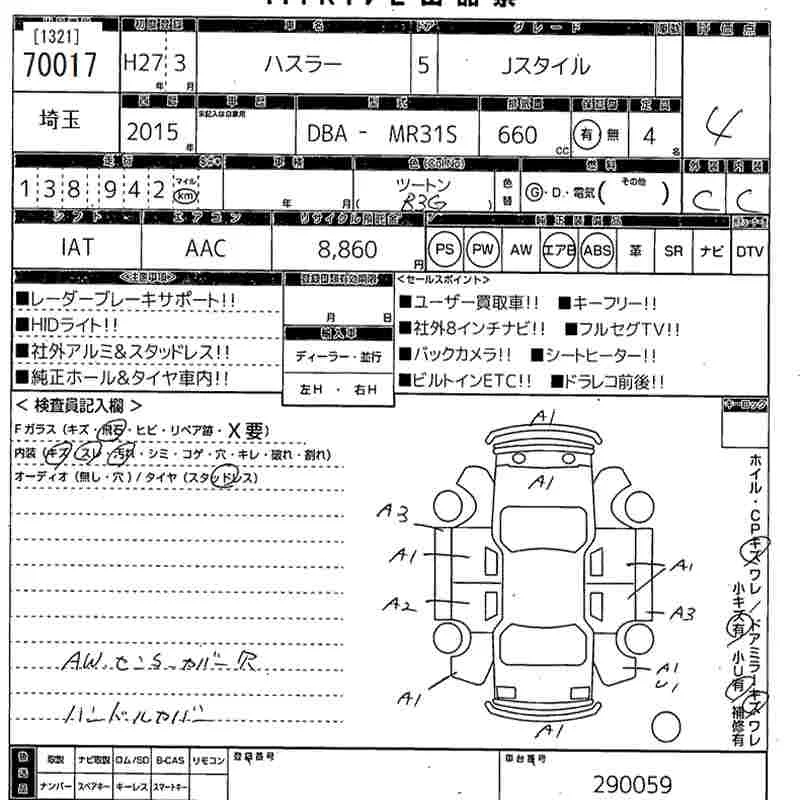 [1321]
70017
H27 3
年 月
車名
ハスラー
ドア
5
グレード
Jスタイル
評価点
4
埼玉
2015
年
車歴
未記入は自家用
型式
DBA - MR31S
排気量
660
CC
有 無
定員
4
名
走行
138942
マイル
km
車検
年 月
色(カラーNo)
ツートン
( B3G )
色替
燃料
G・D・電気( その他 )
外装
C
内装
C
シフト
IAT
エアコン
AAC
リサイクル預託金
8,860
円
PS PW AW エアB ABS 革 SR ナビ DTV
<注意事項>
■レーダーブレーキサポート!!
■HIDライト!!
■社外アルミ&スタッドレス!!
■純正ホール&タイヤ車内!!
登録書類有効期限
月 日
輸入車
ディーラー・並行
左H ・ 右H
<セールスポイント>
■ユーザー買取車!! ■キーフリー!!
■社外8インチナビ!! ■フルセグTV!!
■バックカメラ!! ■シートヒーター!!
■ビルトインETC!! ■ドラレコ前後!!
< 検査員記入欄 >
Fガラス (キズ・飛石・ヒビ・リペア跡・X要)
内装 (キズ・スレ・汚れ・シミ・コゲ・穴・キレ・破れ・割れ)
オーディオ (無し・穴) / タイヤ (スタッドレス)
AW.センSーカバー穴
ハンドルカバー
A1
A1
A3
A1
A1
A2
A3
A1
A1
U1
A1
キーロック
ホイル・CPキズワレ/ドアミラーキズワレ
小キズ有 小U有 補修有
取説 ナビ取説 ロム/SD B-CAS リモコン
ナンバー スペアキー キーレス スマートキー
登録番号
車台番号
290059